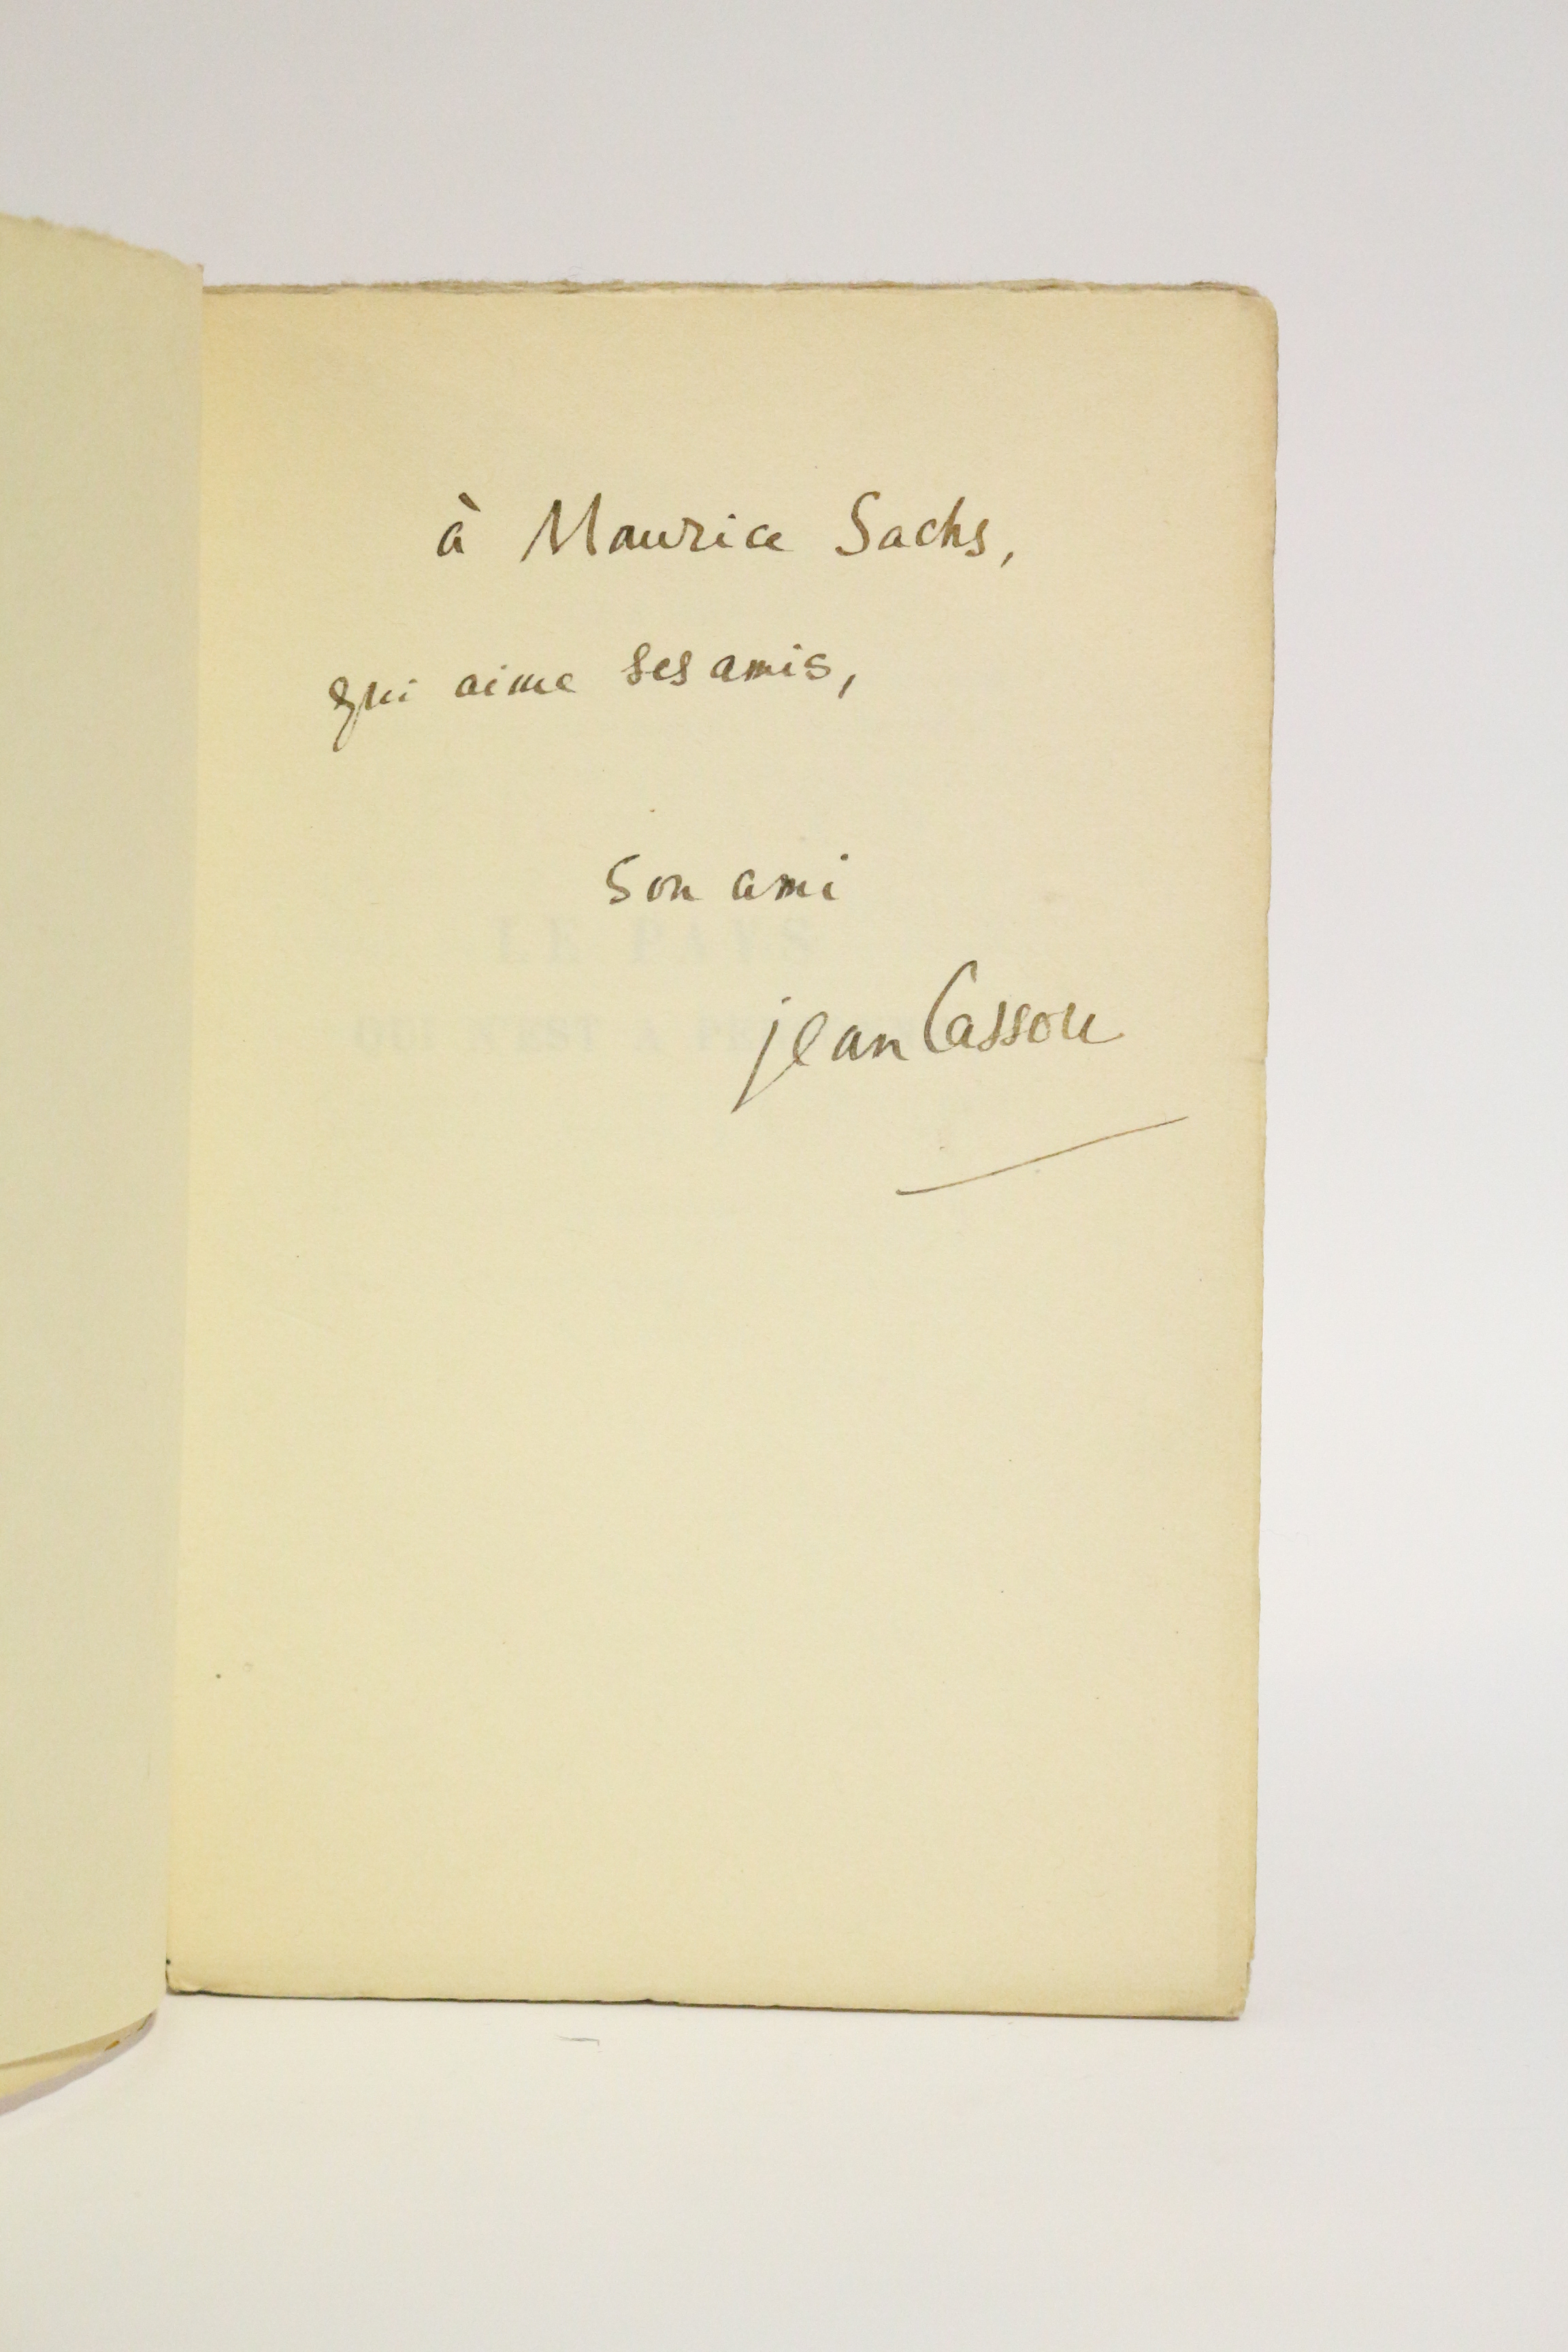 à Maurice Sachs,
qui aime ses amis,
son ami
LE PAYS
jean Cassou